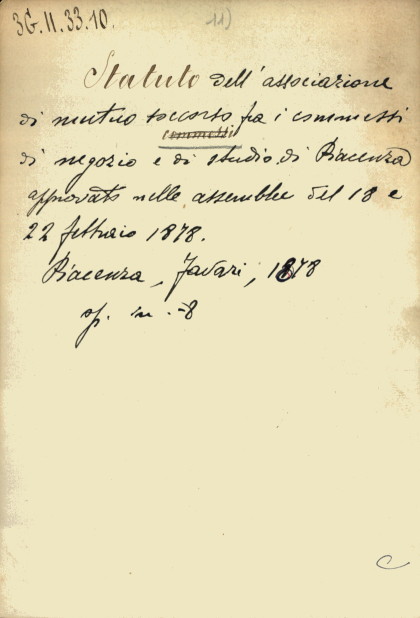 3G.II.33.10. 11)
Statuto dell'associazione
di mutuo soccorso fra i commessi
commessi
di negozio e di studio di Piacenza
approvato nelle assemblee del 18 e
22 febbraio 1878.
Piacenza, Tavari, 1878
op. in -8
C